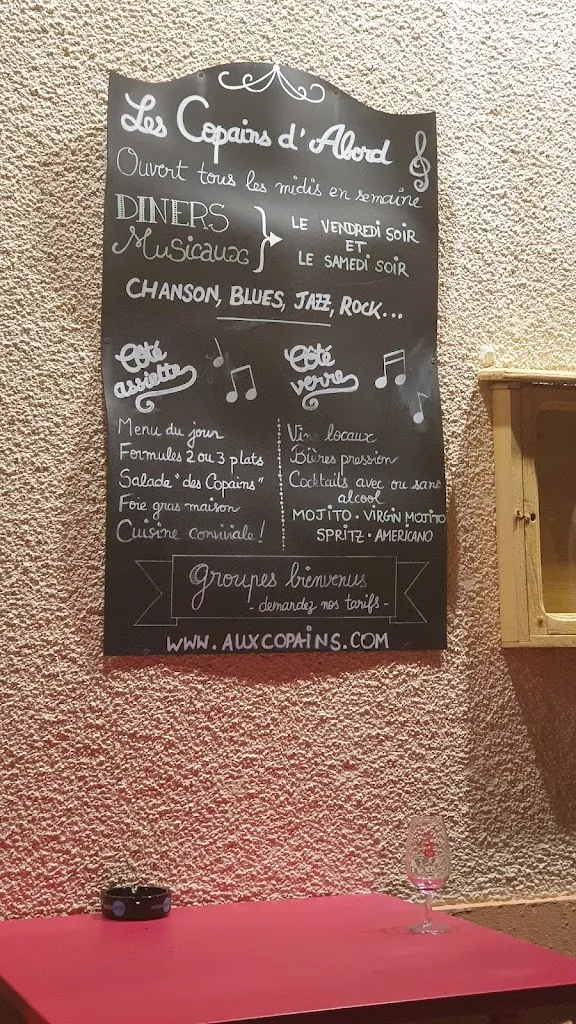 Les Copains d'Abord
Ouvert tous les midis en semaine
DINERS
Musicaux
LE VENDREDI SOIR
ET
LE SAMEDI SOIR
CHANSON, BLUES, JAZZ, ROCK...
Côté
assiette
Menu du jour
Formules 2 ou 3 plats
Salade "des Copains"
Foie gras maison
Cuisine conviviale !
Côté
verre
Vins locaux
Bières pression
Cocktails avec ou sans
alcool
MOJITO · VIRGIN MOJITO
SPRITZ · AMERICANO
Groupes bienvenus
- demandez nos tarifs -
WWW.AUXCOPAINS.COM